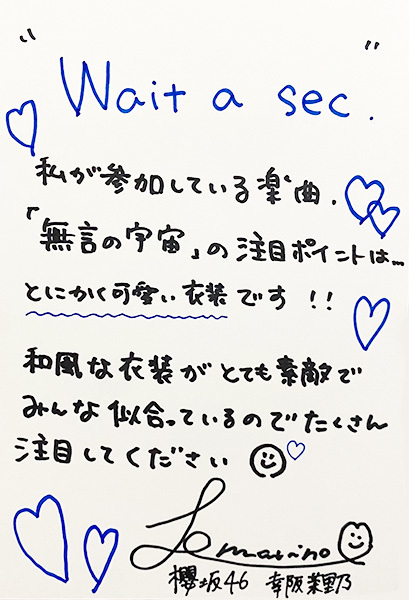 " Wait a sec. "
私が参加している楽曲、
「無言の宇宙」の注目ポイントは…
とにかく可愛い衣装です!!
和風な衣装がとても素敵で
みんな似合っているのでたくさん
注目してください
marino
櫻坂46 幸阪茉里乃